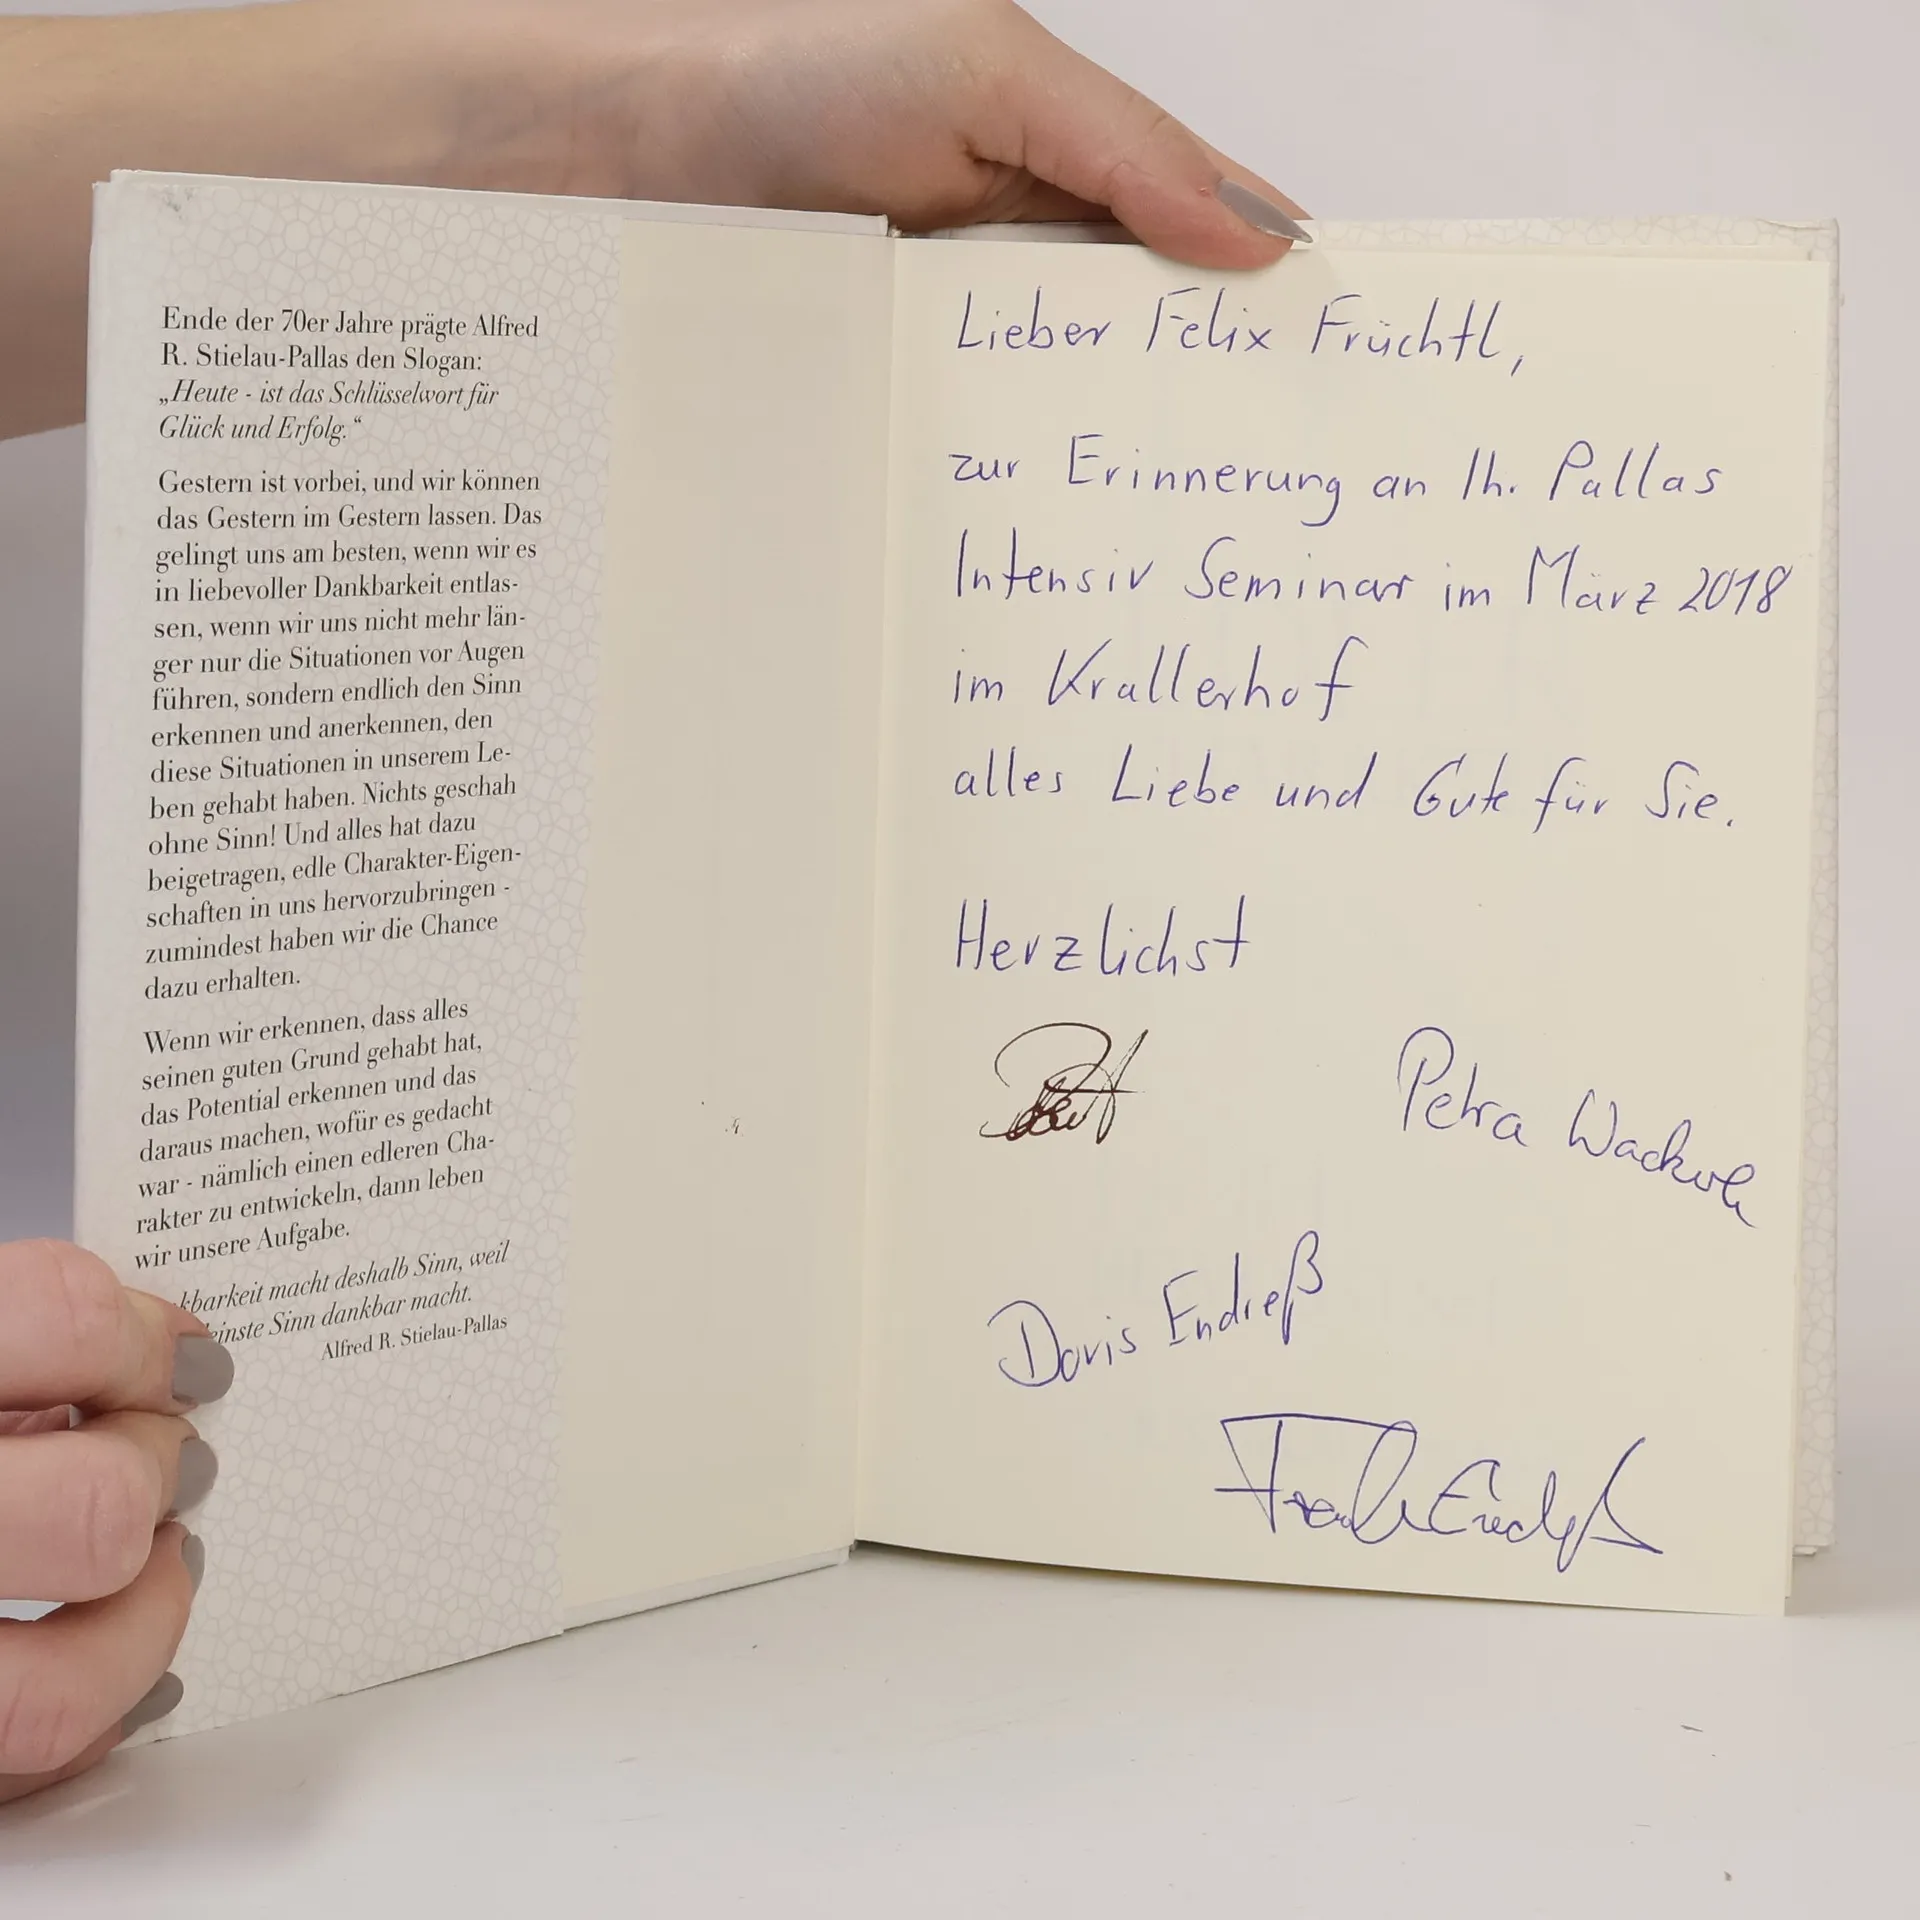 Ende der 70er Jahre prägte Alfred
R. Stielau-Pallas den Slogan:
„Heute - ist das Schlüsselwort für
Glück und Erfolg.“
Gestern ist vorbei, und wir können
das Gestern im Gestern lassen. Das
gelingt uns am besten, wenn wir es
in liebevoller Dankbarkeit entlas-
sen, wenn wir uns nicht mehr län-
ger nur die Situationen vor Augen
führen, sondern endlich den Sinn
erkennen und anerkennen, den
diese Situationen in unserem Le-
ben gehabt haben. Nichts geschah
ohne Sinn! Und alles hat dazu
beigetragen, edle Charakter-Eigen-
schaften in uns hervorzubringen -
zumindest haben wir die Chance
dazu erhalten.
Wenn wir erkennen, dass alles
seinen guten Grund gehabt hat,
das Potential erkennen und das
daraus machen, wofür es gedacht
war - nämlich einen edleren Cha-
rakter zu entwickeln, dann leben
wir unsere Aufgabe.
kbarkeit macht deshalb Sinn, weil
einste Sinn dankbar macht.
Alfred R. Stielau-Pallas
Lieber Felix Früchtl,
zur Erinnerung an Ih. Pallas
Intensiv Seminar im März 2018
im Krallerhof
alles Liebe und Gute für Sie.
Herzlichst
Petra
Doris Endreß
Endreß